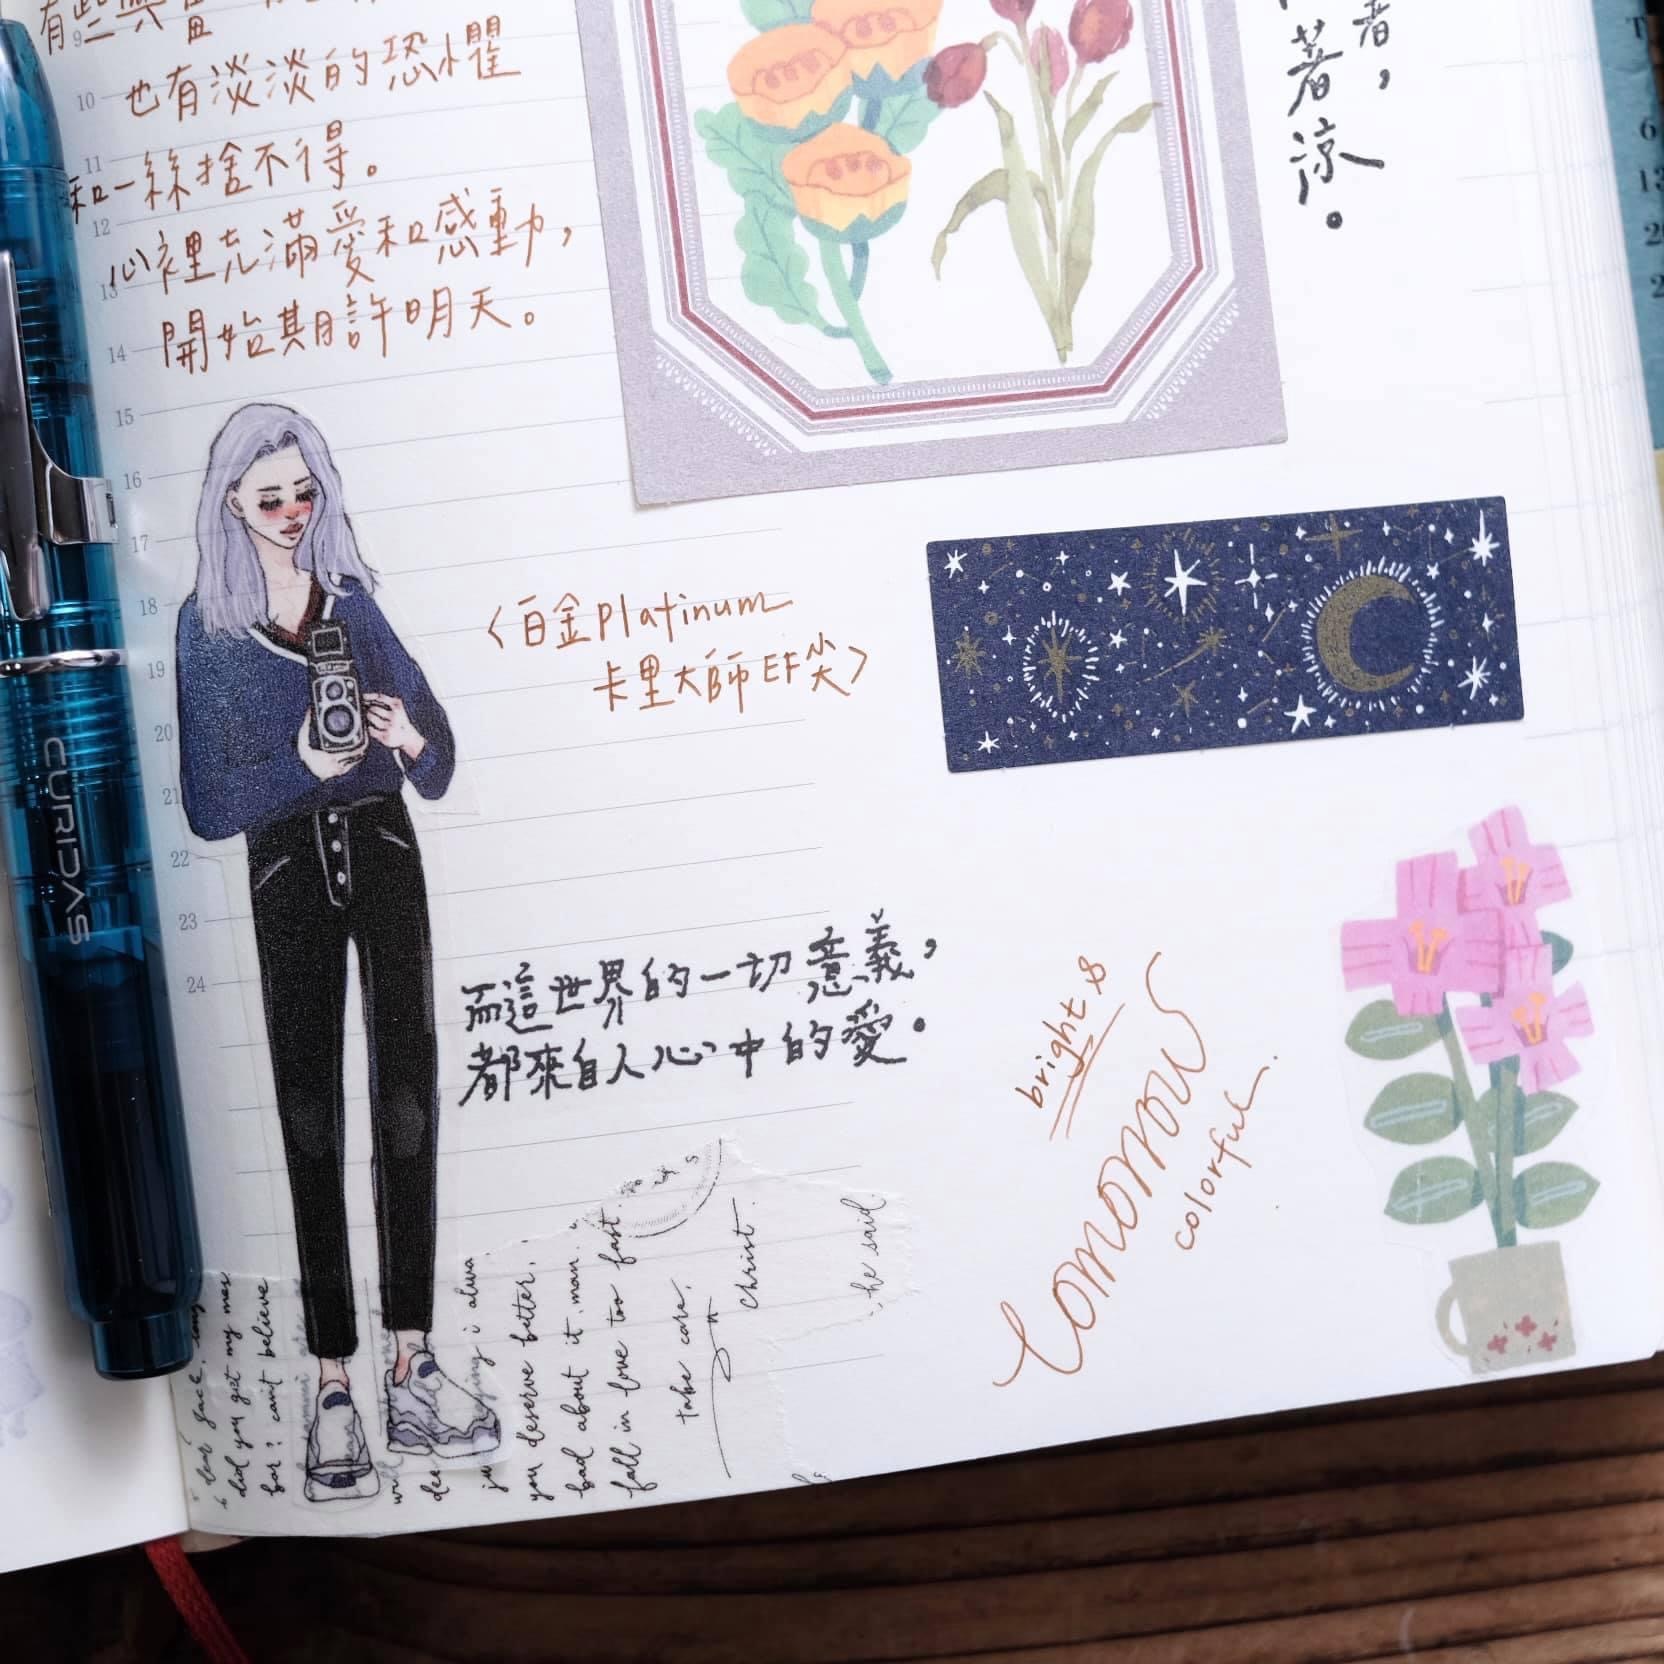 有些興奮
也有淡淡的恐懼
和一絲捨不得。
心裡充滿愛和感動，
開始期許明天。
9
10
11
12
13
14
15
16
17
18
19
20
21
22
23
24
CURIDAS
〈白金platinum
卡里大師EF尖〉
而這世界的一切意義，
都來自人心中的愛。
者，
著涼。
bright &
Tomorrow
colorful.
dear Jack,
did you get my mes
for? can't believe
i alwa
you deserve better,
bad about it, man.
fall in love too fast.
take care.
Christ.
he said